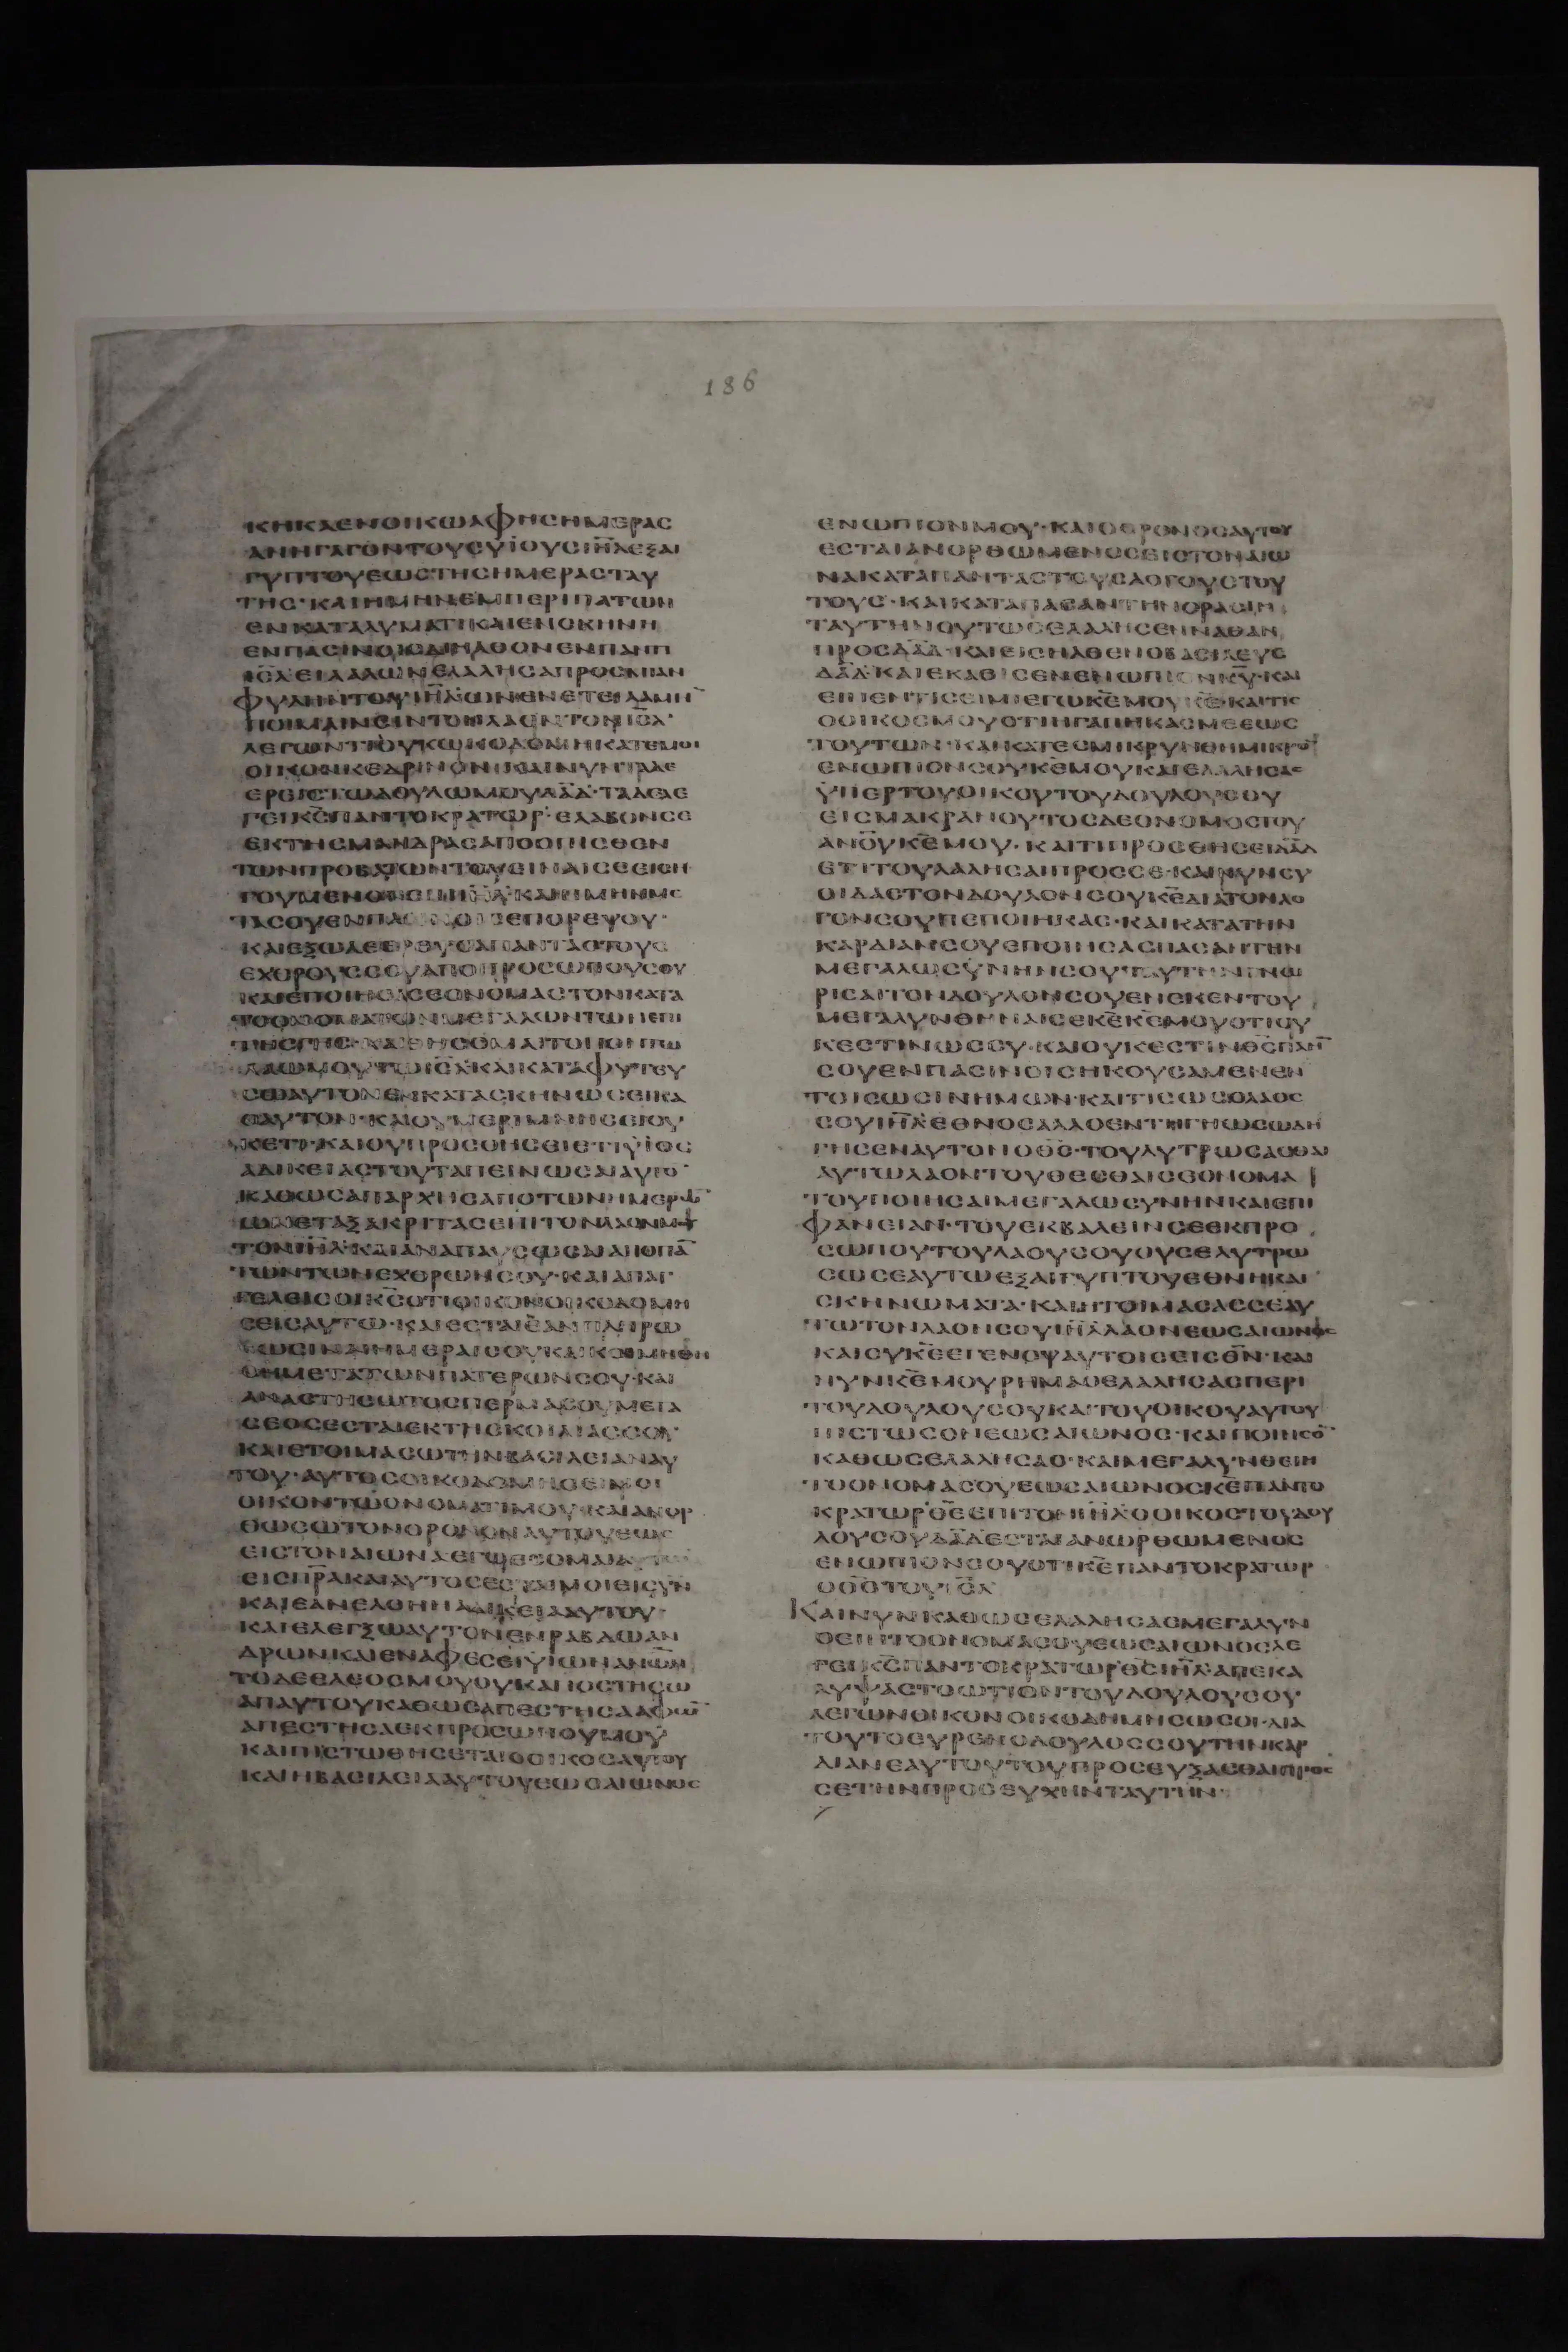 ΚΗΚΑΕΝΟΙΚΩΑΦΗϹΗΜΕΡΑϹ
ΑΝΗΓΑΓΟΝΤΟΥϹΥΪΟΥϹΙΗ̅Λ̅ΕΞΑΙ
ΓΥΠΤΟΥΕΩϹΤΗϹΗΜΕΡΑϹΤΑΥ
ΤΗϹ·ΚΑΙΗΜΗΝΕΜΠΕΡΙΠΑΤΩΝ
ΕΝΚΑΤΑΛΥΜΑΤΙΚΑΙΕΝϹΚΗΝΗ
ΕΝΠΑϹΙΝΟΙϹΔΙΗΛΘΟΝΕΝΠΑΝΤΙ
ΙϹ̅Λ̅ΕΙΛΑΛΩΝΕΛΑΛΗϹΑΠΡΟϹΜΙΑΝ
ΦΥΛΗΝΤΟΥΙΗ̅Λ̅ΩΝΕΝΕΤΕΙΛΑΜΗ̅
ΠΟΙΜΑΙΝΕΙΝΤΟΝΛΑΟΝΤΟΝΙϹ̅Λ̅·
ΛΕΓΩΝΤΙΟΥΚΩΚΟΔΟΜΗΚΑΤΕΜΟΙ
ΟΙΚΟΝΚΕΔΡΙΝΟΝ·ΚΑΙΝΥΝΤΑΔΕ
ΕΡΕΙϹΤΩΔΟΥΛΩΜΟΥΔΑ̅Δ̅·ΤΑΔΕΛΕ
ΓΕΙΚ̅Ϲ̅ΠΑΝΤΟΚΡΑΤΩΡ·ΕΛΑΒΟΝϹΕ
ΕΚΤΗϹΜΑΝΔΡΑϹΑΠΟΟΠΙϹΘΕΝ
ΤΩΝΠΡΟΒΑΤΩΝΤΟΥΕΙΝΑΙϹΕΕΙϹΗ
ΓΟΥΜΕΝΟΝ
ΤΑϹΟΥΕΝΠΑ ΕΠΟΡΕΨΟΥ·
ΚΑΙΕΞΩΛΕΘΡΕΥϹΑΠΑΝΤΑϹΤΟΥϹ
ΕΧΘΡΟΥϹϹΟΥΑΠΟΠΡΟϹΩΠΟΥϹΟΥ
ΚΑΙΕΠΟΙΗϹΑϹΕΟΝΟΜΑϹΤΟΝΚΑΤΑ
ΤΟΟΝΟΜΑΤΩΝΜΕΓΑΛΩΝΤΩΝΕΠΙ
ΤΗϹΓΗϹ·ΚΑΙΘΗϹΟΜΑΙΤΟΠΟΝΤΩ
ΛΑΩΜΟΥΤΩΙϹ̅Λ̅·ΚΑΙΚΑΤΑΦΥΤΕΥ
ϹΩΑΥΤΟΝΕΝΚΑΤΑϹΚΗΝΩϹΕΙΚΑ
ΘΑΥΤΟΝ·ΚΑΙΟΥΜΕΡΙΜΝΗϹΕΙΟΥ
ΚΕΤΙ·ΚΑΙΟΥΠΡΟϹΘΗϹΕΙΕΤΙΥΪΟϹ
ΑΔΙΚΕΙΑϹΤΟΥΤΑΠΕΙΝΩϹΑΙΑΥΤΟ̅·
ΚΑΘΩϹΑΠΑΡΧΗϹΑΠΟΤΩΝΗΜΕΡΩ̅
ΩΝΕΤΑΞΑΚΡΙΤΑϹΕΠΙΤΟΝΛΑΟΝΜΟΥ
ΤΟΝΙΗ̅Λ̅·ΚΑΙΑΝΑΠΑΥϹΩϹΑΙΑΠΟΠΑ̅
ΤΩΝΤΩΝΕΧΘΡΩΝϹΟΥ·ΚΑΙΑΠΑΓ
ΓΕΛΕΙϹΟΙΚ̅Ϲ̅ΟΤΙΟΙΚΟΝΟΙΚΟΔΟΜΗ
ϹΕΙϹΑΥΤΩ·ΚΑΙΕϹΤΑΙΕΑΝΠΛΗΡΩ
ΘΩϹΙΝΑΙΗΜΕΡΑΙϹΟΥΚΑΙΚΟΙΜΗΘΗ
ϹΗΜΕΤΑΤΩΝΠΑΤΕΡΩΝϹΟΥ·ΚΑΙ
ΑΝΑϹΤΗϹΩΤΟϹΠΕΡΜΑϹΟΥΜΕΤΑ
ϹΕΟϹΕϹΤΑΙΕΚΤΗϹΚΟΙΛΙΑϹϹΟΥ·
ΚΑΙΕΤΟΙΜΑϹΩΤΗΝΒΑϹΙΛΕΙΑΝΑΥ
ΤΟΥ·ΑΥΤΟϹΟΙΚΟΔΟΜΗϹΕΙΜΟΙ
ΟΙΚΟΝΤΩΟΝΟΜΑΤΙΜΟΥ·ΚΑΙΑΝΟΡ
ΘΩϹΩΤΟΝΘΡΟΝΟΝΑΥΤΟΥΕΩϹ
ΕΙϹΤΟΝΑΙΩΝΑΕΓΩΕϹΟΜΑΙΑΥΤΩ
ΕΙϹΠ̅Ρ̅Α̅ΚΑΙΑΥΤΟϹΕϹΤΑΙΜΟΙΕΙϹΥ̅Ν̅
ΚΑΙΕΑΝΕΛΘΗΗΑΔΙΚΕΙΑΑΥΤΟΥ·
ΚΑΙΕΛΕΓΞΩΑΥΤΟΝΕΝΡΑΒΔΩΑΝ
ΔΡΩΝΚΑΙΕΝΑΦΕϹΕΙΥΪΩΝΑΝ̅Ω̅Ν̅
ΤΟΔΕΕΛΕΟϹΜΟΥΟΥΚΑΠΟϹΤΗϹΩ
ΑΠΑΥΤΟΥΚΑΘΩϹΑΠΕϹΤΗϹΑΑΦΩ̅
ΑΠΕϹΤΗϹΑΕΚΠΡΟϹΩΠΟΥΜΟΥ
ΚΑΙΠΙϹΤΩΘΗϹΕΤΑΙΟΟΙΚΟϹΑΥΤΟΥ
ΚΑΙΗΒΑϹΙΛΕΙΑΑΥΤΟΥΕΩϹΑΙΩΝΟϹ
186
ΕΝΩΠΙΟΝΜΟΥ·ΚΑΙΟΘΡΟΝΟϹΑΥΤΟΥ
ΕϹΤΑΙΑΝΟΡΘΩΜΕΝΟϹΕΙϹΤΟΝΑΙΩ
ΝΑΚΑΤΑΠΑΝΤΑϹΤΟΥϹΛΟΓΟΥϹΤΟΥ
ΤΟΥϹ·ΚΑΙΚΑΤΑΠΑϹΑΝΤΗΝΟΡΑϹΙΝ
ΤΑΥΤΗΝΟΥΤΩϹΕΛΑΛΗϹΕΝΝΑΘΑΝ
ΠΡΟϹΔΑ̅Δ̅·ΚΑΙΕΙϹΗΛΘΕΝΟΒΑϹΙΛΕΥϹ
ΔΑ̅Δ̅·ΚΑΙΕΚΑΘΙϹΕΝΕΝΩΠΙΟΝΚ̅Υ̅·ΚΑΙ
ΕΙΠΕΝΤΙϹΕΙΜΙΕΓΩΚ̅Ε̅ΜΟΥΚ̅Ε̅·ΚΑΙΤΙϹ
ΟΟΙΚΟϹΜΟΥΟΤΙΗΓΑΠΗΚΑϹΜΕΕΩϹ
ΤΟΥΤΩΝ·ΚΑΙΚΑΤΕϹΜΙΚΡΥΝΘΗΜΙΚΡΟ̅
ΕΝΩΠΙΟΝϹΟΥΚ̅Ε̅ΜΟΥΚΑΙΕΛΑΛΗϹΑϹ
ΫΠΕΡΤΟΥΟΙΚΟΥΤΟΥΔΟΥΛΟΥϹΟΥ
ΕΙϹΜΑΚΡΑΝΟΥΤΟϹΔΕΟΝΟΜΟϹΤΟΥ
ΑΝ̅Ο̅Υ̅Κ̅Ε̅ΜΟΥ·ΚΑΙΤΙΠΡΟϹΘΗϹΕΙΔΑ̅Δ̅
ΕΤΙΤΟΥΛΑΛΗϹΑΙΠΡΟϹϹΕ·ΚΑΙΝΥΝϹΥ
ΟΙΔΑϹΤΟΝΔΟΥΛΟΝϹΟΥΚ̅Ε̅ΔΙΑΤΟΝΛΟ
ΓΟΝϹΟΥΠΕΠΟΙΗΚΑϹ·ΚΑΙΚΑΤΑΤΗΝ
ΚΑΡΔΙΑΝϹΟΥΕΠΟΙΗϹΑϹΠΑϹΑΝΤΗΝ
ΜΕΓΑΛΩϹΥΝΗΝϹΟΥΤΑΥΤΗΝΓΝΩ
ΡΙϹΑΙΤΟΝΔΟΥΛΟΝϹΟΥΕΝΕΚΕΝΤΟΥ
ΜΕΓΑΛΥΝΘΗΝΑΙϹΕΚ̅Ε̅Κ̅Ε̅ΜΟΥΟΤΙΟΥ
ΚΕϹΤΙΝΩϹϹΥ·ΚΑΙΟΥΚΕϹΤΙΝΘ̅Ϲ̅ΠΛΗ̅
ϹΟΥΕΝΠΑϹΙΝΟΙϹΗΚΟΥϹΑΜΕΝΕΝ
ΤΟΙϹΩϹΙΝΗΜΩΝ·ΚΑΙΤΙϹΩϹΟΛΑΟϹ
ϹΟΥΙΗ̅Λ̅ΕΘΝΟϹΑΛΛΟΕΝΤΗΓΗΩϹΩΔΗ
ΓΗϹΕΝΑΥΤΟΝΟΘ̅Ϲ̅·ΤΟΥΛΥΤΡΩϹΑϹΘΑΙ
ΑΥΤΩΛΑΟΝΤΟΥΘΕϹΘΑΙϹΕΟΝΟΜΑ
ΤΟΥΠΟΙΗϹΑΙΜΕΓΑΛΩϹΥΝΗΝΚΑΙΕΠΙ
ΦΑΝΕΙΑΝ·ΤΟΥΕΚΒΑΛΕΙΝϹΕΕΚΠΡΟ
ϹΩΠΟΥΤΟΥΛΑΟΥϹΟΥΟΥϹΕΛΥΤΡΩ
ϹΩϹΕΑΥΤΩΕΞΑΙΓΥΠΤΟΥΕΘΝΗΚΑΙ
ϹΚΗΝΩΜΑΤΑ·ΚΑΙΗΤΟΙΜΑϹΑϹϹΕΑΥ
ΤΩΤΟΝΛΑΟΝϹΟΥΙΗ̅Λ̅ΛΑΟΝΕΩϹΑΙΩΝΟϹ
ΚΑΙϹΥΚ̅Ε̅ΕΓΕΝΟΥΑΥΤΟΙϹΕΙϹΘ̅Ν̅·ΚΑΙ
ΝΥΝΚ̅Ε̅ΜΟΥΡΗΜΑΟΕΛΑΛΗϹΑϹΠΕΡΙ
ΤΟΥΔΟΥΛΟΥϹΟΥΚΑΙΤΟΥΟΙΚΟΥΑΥΤΟΥ
ΠΙϹΤΩϹΟΝΕΩϹΑΙΩΝΟϹ·ΚΑΙΠΟΙΗϹΟ̅
ΚΑΘΩϹΕΛΑΛΗϹΑϹ·ΚΑΙΜΕΓΑΛΥΝΘΕΙΗ
ΤΟΟΝΟΜΑϹΟΥΕΩϹΑΙΩΝΟϹΚ̅Ε̅ΠΑΝΤΟ
ΚΡΑΤΩΡΘ̅Ε̅ΕΠΙΤΟΝΙΗ̅Λ̅·ΟΟΙΚΟϹΤΟΥΔΟΥ
ΛΟΥϹΟΥΔΑ̅Δ̅ΕϹΤΑΙΑΝΩΡΘΩΜΕΝΟϹ
ΕΝΩΠΙΟΝϹΟΥΟΤΙΚ̅Ε̅ΠΑΝΤΟΚΡΑΤΩΡ
ΟΘ̅Ϲ̅ΤΟΥΙϹ̅Λ̅
ΚΑΙΝΥΝΚΑΘΩϹΕΛΑΛΗϹΑϹΜΕΓΑΛΥΝ
ΘΕΙΗΤΟΟΝΟΜΑϹΟΥΕΩϹΑΙΩΝΟϹΛΕ
ΓΕΙΚ̅Ϲ̅ΠΑΝΤΟΚΡΑΤΩΡΘ̅Ϲ̅ΙΗ̅Λ̅·ΑΠΕΚΑ
ΛΥΨΑϹΤΟΩΤΙΟΝΤΟΥΔΟΥΛΟΥϹΟΥ
ΛΕΓΩΝΟΙΚΟΝΟΙΚΟΔΗΜΗϹΩϹΟΙ·ΔΙΑ
ΤΟΥΤΟΕΥΡΕΝΟΔΟΥΛΟϹϹΟΥΤΗΝΚΑΡ
ΔΙΑΝΕΑΥΤΟΥΤΟΥΠΡΟϹΕΥΞΑϹΘΑΙΠΡΟϹ
ϹΕΤΗΝΠΡΟϹΕΥΧΗΝΤΑΥΤΗΝ·